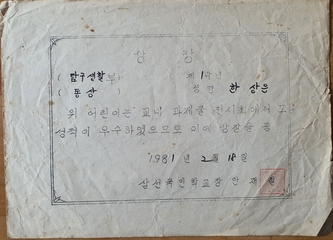 상 장
(탐구생활부) 제1학년
(동상) 성명 한상은
위 어린이는 교내 과제물 전시회에서 그
성적이 우수하였으므로 이에 상장을 줌
1981년 2월 18일
삼선국민학교장 안재